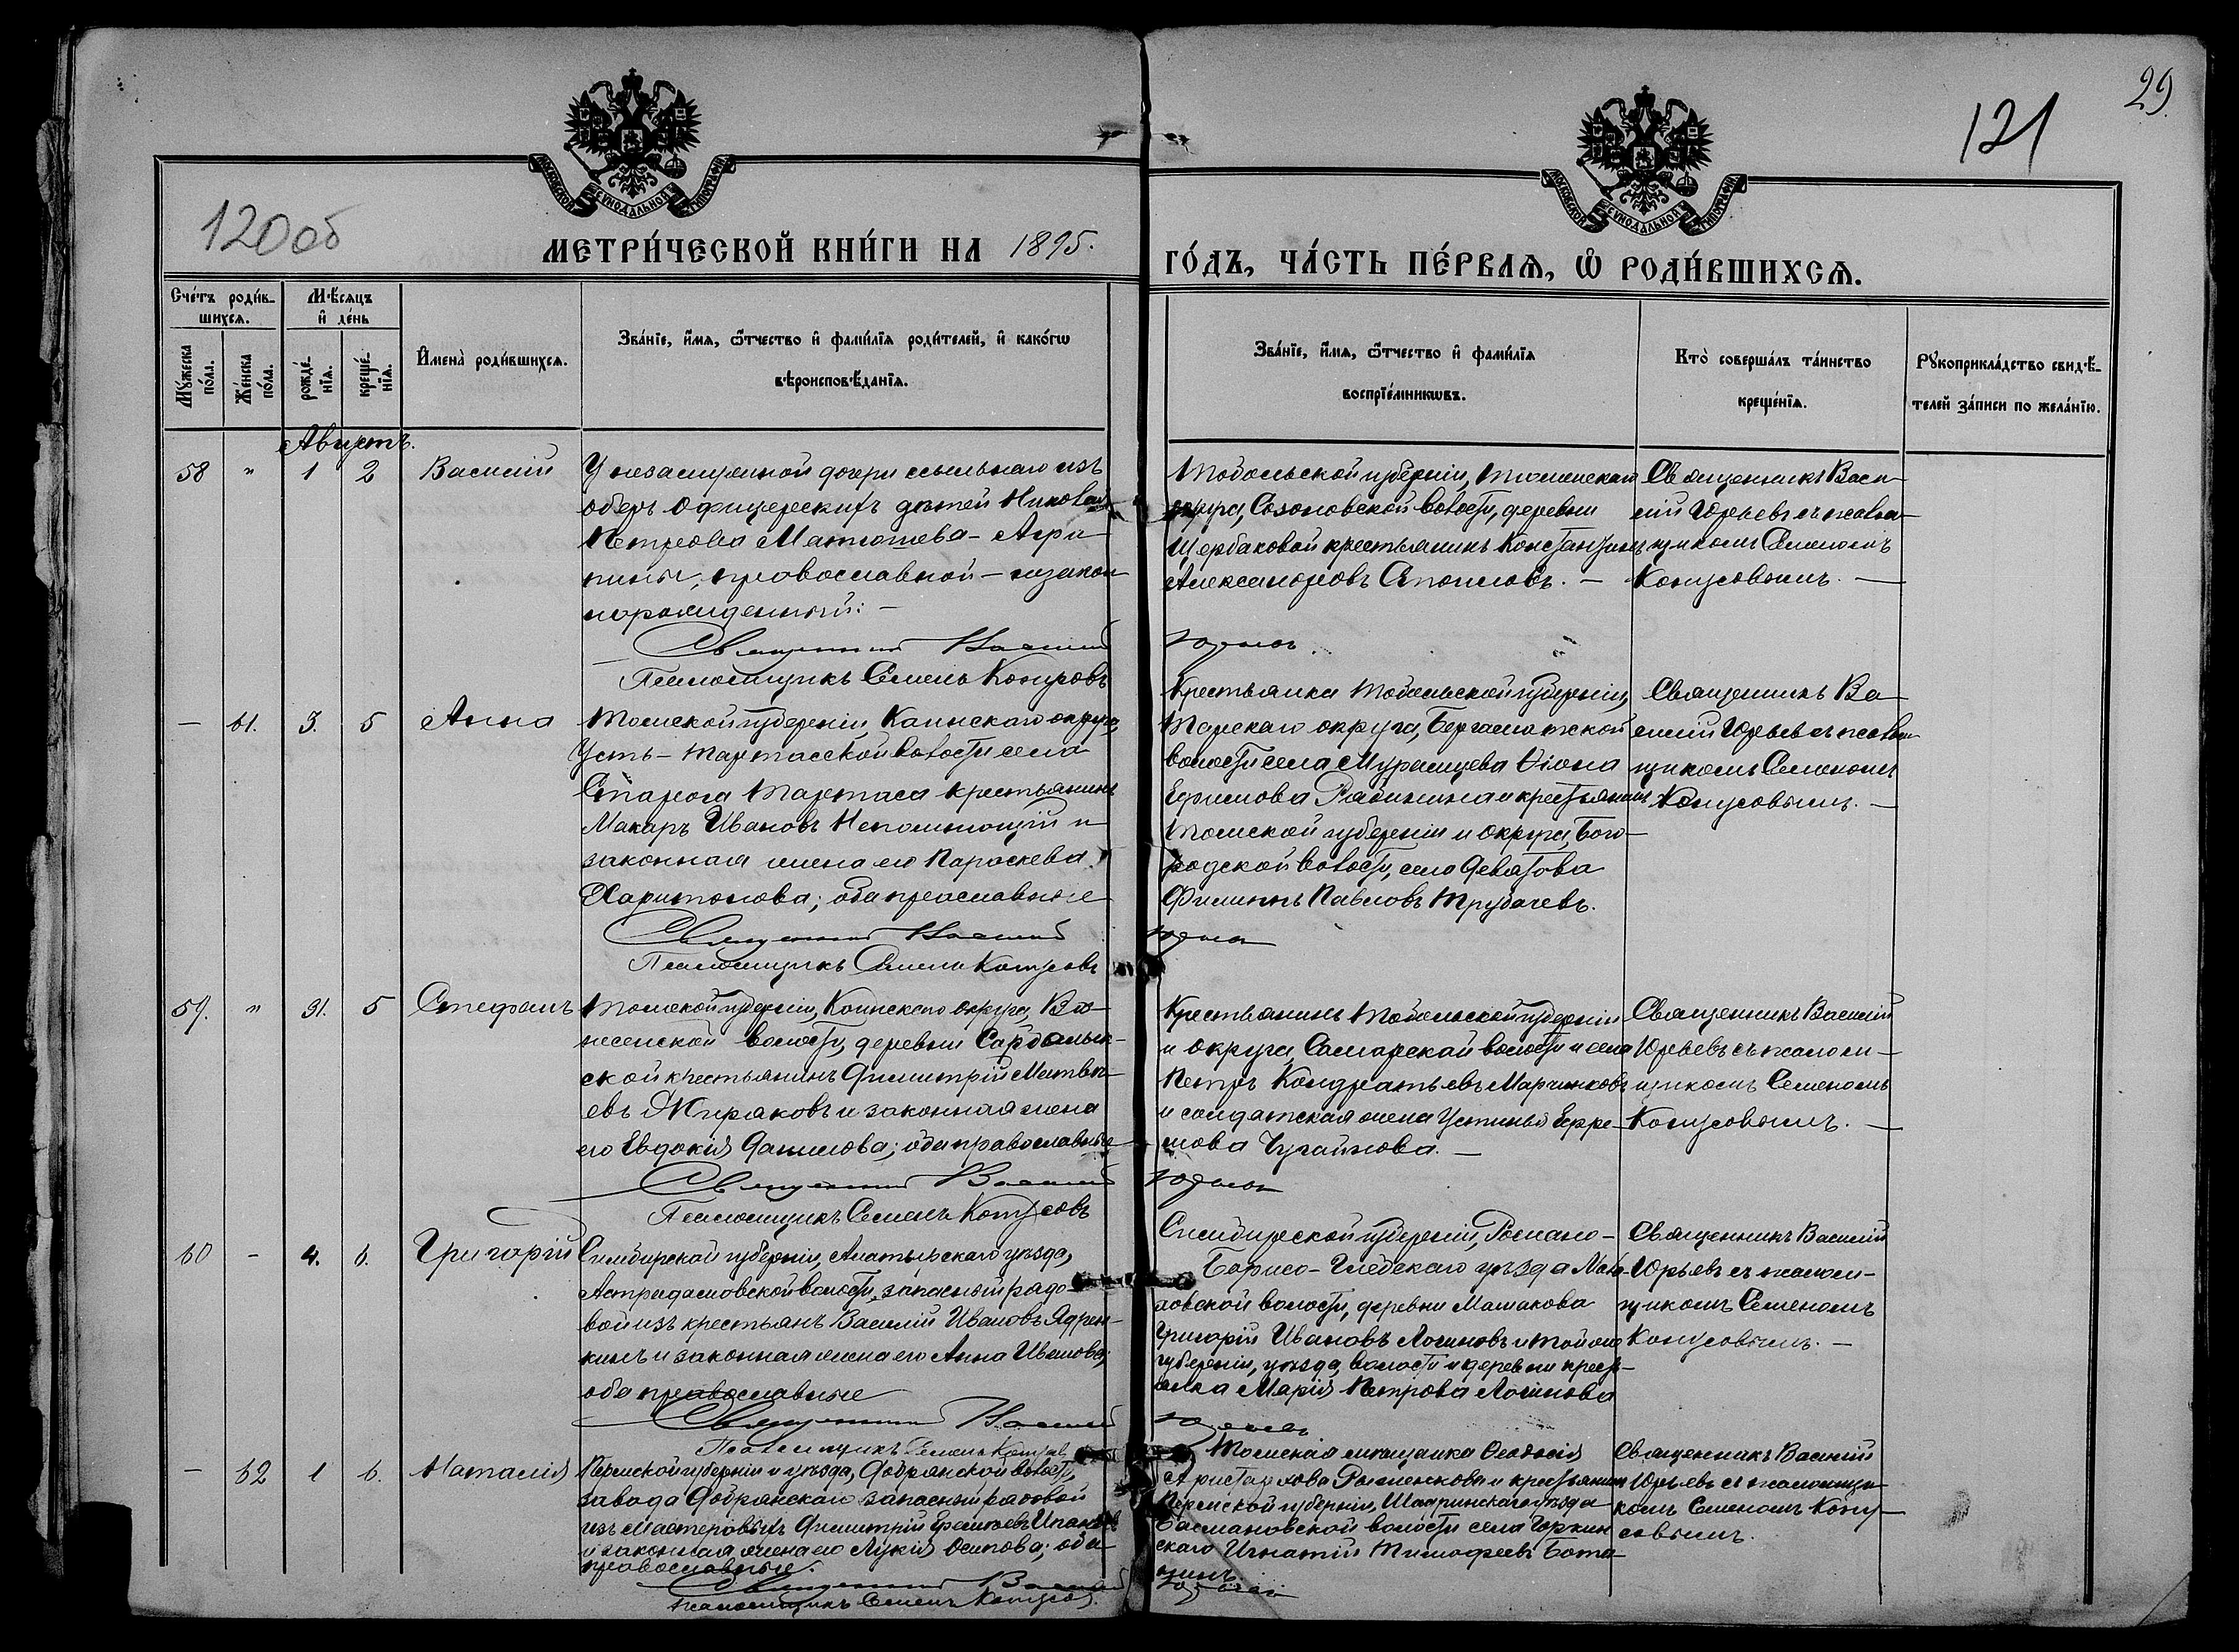 29.
121
120об
МОСКОВСКОЙ СУНОДАЛЬНОЙ ТИПОГРАФІИ
МОСКОВСКОЙ СУНОДАЛЬНОЙ ТИПОГРАФІИ
МЕТРИ́ЧЕСКОЙ КНИ́ГИ НА 1895.
ГО́ДЪ, ЧА́СТЬ ПЕ́РВАѦ, Ѡ҆ РОДИ́ВШИХСѦ.
Сче́тъ роди́в-
шихсѧ.
Мꙋ́жеска
по́ла.
Же́нска
по́ла.
М‎ѣ́сѧцъ
и҆ де́нь
рожде́-
нїѧ.
креще́-
нїѧ.
И҆мена̀ роди́вшихсѧ.
Зва́нїе, и҆́мѧ, ѻ҆́тчество и҆ фами́лїѧ роди́телей, и҆ како́гѡ
вѣроисповѣ́данїѧ.
Зва́нїе, и҆́мѧ, ѻ҆́тчество и҆ фами́лїѧ
воспрїе́мникѡвъ.
Кто̀ соверша́лъ та́инство
креще́нїѧ.
Рꙋкоприкла́дство свидѣ́-
телей за́писи по жела́нїю.
Августъ.
58 " 1 2 Василій
У незамужной дочери ссыльнаго изъ
оберъ офицерскихъ дѣтей Николая
Петрова Матюшева - Агри-
пины, православной - незакон-
норожденный: -
Священникъ Василій
Псаломщикъ Семенъ
Тобольской губерніи, Тюменскаго
округа, Созоновской волости, деревни
Щербаковой крестьянинъ Константинъ
Александровъ -
Юрьевъ
Священникъ Васи-
лій Юрьевъ съ псалом-
щикомъ Семеномъ
-
- 61. 3. 5 Анна
Томской губерніи, Каинскаго округа,
Усть-Тартасской волости села
Стараго Тартаса крестьянинъ
Макаръ Ивановъ Непомнющій и
законная жена его Параскева
Харитонова; оба православные
Священникъ Василій
Псаломщикъ Семенъ
Крестьянка Тобольской губерніи,
Тарскаго округа, Бергаматской
волости села Мурамцева
Ефимова и крестьянинъ
Томской губерніи и округа, Бого-
родской волости, села
Филиппъ Павловъ Трубачевъ.
Юрьевъ
Священникъ Ва-
силій Юрьевъ съ псалом-
щикомъ Семеномъ
-
59. " 31. 5 Стефанъ
Томской губерніи, Каинскаго округа, Воз-
несенской волости, деревни
ской крестьянинъ Димитрій Матвѣ-
евъ Жиряковъ и законная жена
его Евдокія Данилова; оба православные
Священникъ Василій
Псаломщикъ Семенъ
Крестьянинъ Тобольской губерніи
и округа, Самарской волости и села
Петръ Кондратьевъ
и солдатская жена Устинья Ефре-
мова
Юрьевъ
Священникъ Василій
Юрьевъ съ псаломъ-
щикомъ Семеномъ
-
60 - 4. 6. Григорій
Симбирской губерніи, Алатырскаго уѣзда,
Астрадамовской волости, запасный рядо-
вой изъ крестьянъ Василій Ивановъ Ядрен-
кинъ и законная жена его Анна Иванова;
оба православные
Священникъ Василій
Псаломщикъ Семенъ
Симбирской губерніи, Романо-
Борисо-Глебскаго уѣзда
ловской волости, деревни
Григорій Ивановъ Логиновъ и той же
губерніи, уѣзда, волости и деревни кресть-
янка Марія Петрова Логинова
Юрьевъ
Священникъ Василій
Юрьевъ съ псалом-
щикомъ Семеномъ
-
- 62 1 6. Наталія
Пермской губерніи и уѣзда, Добрянской волости,
завода Добрянскаго запасный рядовой
изъ мастеровыхъ Димитрій
и законная жена его Лукія Осипова; оба
православные.
Священникъ Василій
Псаломщикъ Семенъ
Томская мѣщанка Феодосія
Аристархова и крестьянинъ
Пермской губерніи, Шадринскаго уѣзда
Басмановской волости села
скаго Игнатій Тимофеевъ
Юрьевъ
Священникъ Василій
Юрьевъ съ псаломщи-
комъ Семеномъ